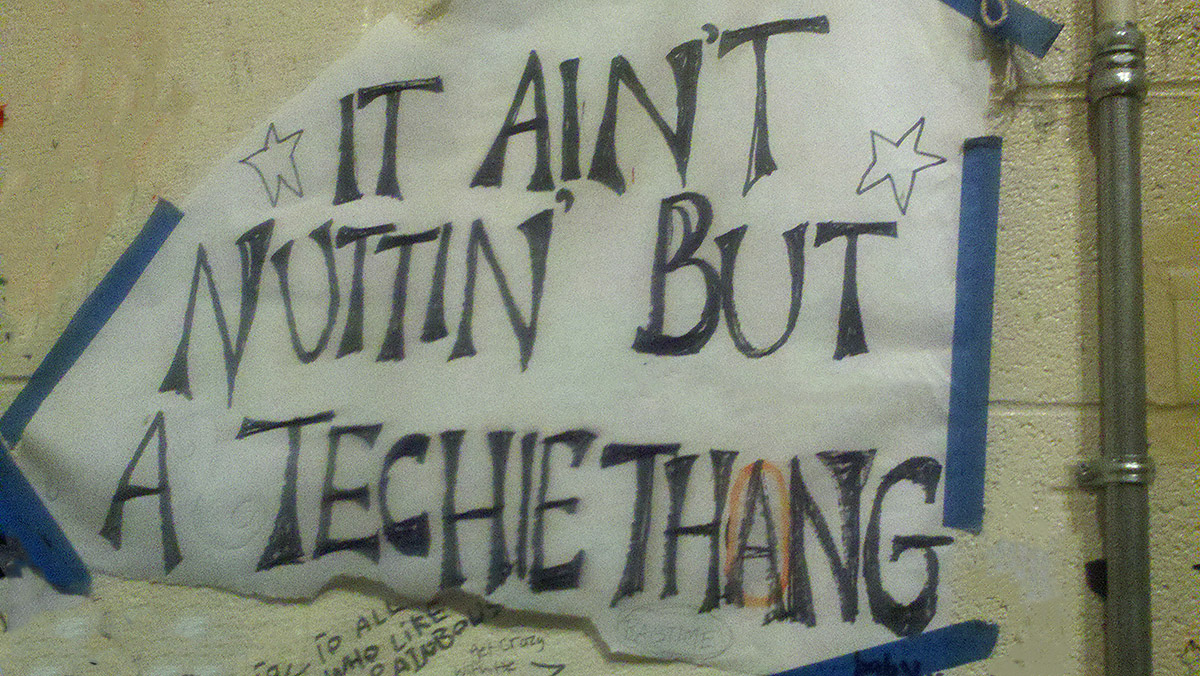 IT AIN'T
NUTTIN' BUT
A TECHIE THANG
TO ALL
WHO LIKE
RAINBOWS
get crazy
baby